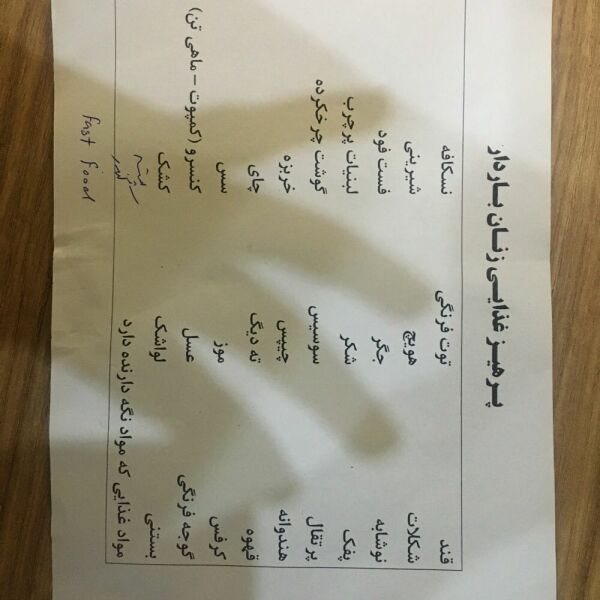 پرهیز غذایی زنان باردار
قند توت فرنگی نسکافه
شکلات هویج شیرینی
نوشابه جگر فست فود
پفک شکر لبنیات پرچرب
پرتقال سوسیس گوشت چرخکرده
هندوانه چیپس خربزه
قهوه ته دیگ چای
کرفس موز سس
گوجه فرنگی عسل کنسرو (کمپوت – ماهی تن)
بستنی لواشک کشک
مواد غذایی که مواد نگه دارنده دارد
fast food